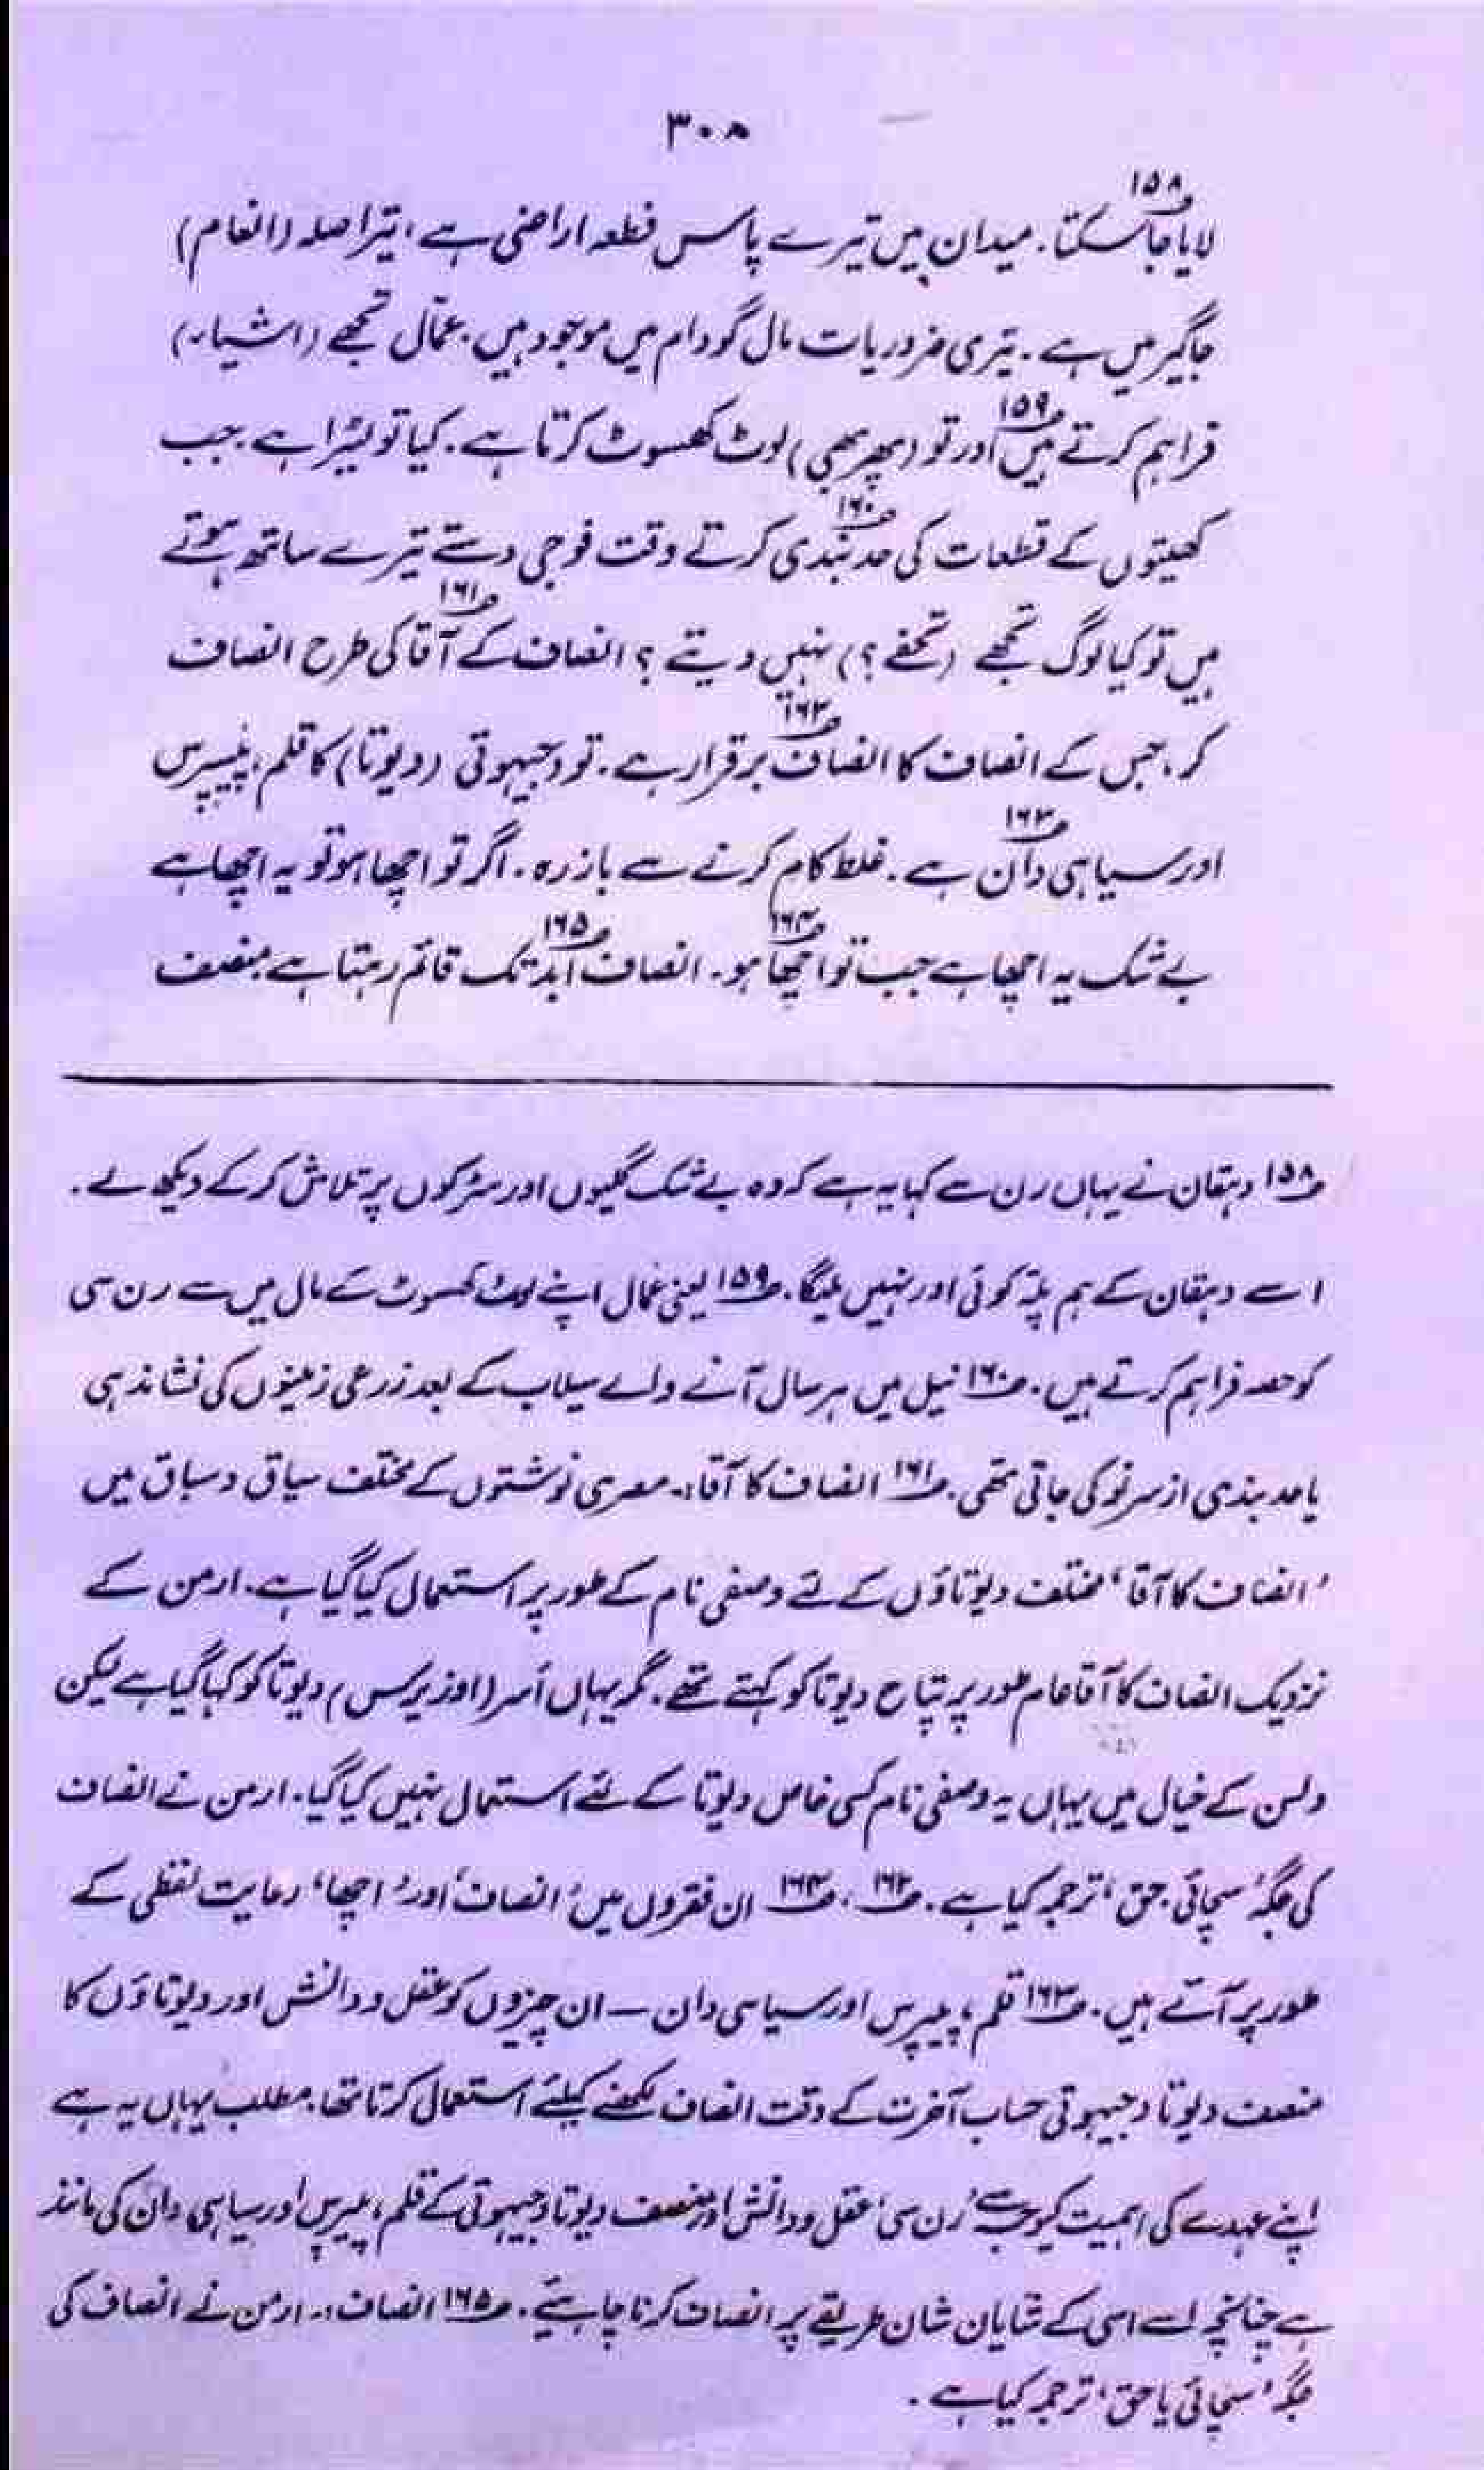 ۳۰۸
لایا جا سکتا۔۱۵۸ میدان میں تیرے پاس قطعہ اراضی ہے، تیرا صلہ (انعام)
جاگیر میں ہے۔ تیری ضروریات مال گودام میں موجود ہیں۔ عمّال تجھے (اشیاء)
فراہم کرتے ہیں۱۵۹ اور تو (پھر بھی) لوٹ کھسوٹ کرتا ہے۔ کیا تو لٹیرا ہے۔ جب
کھیتوں کے قطعات کی حد بندی۱۶۰ کرتے وقت فوجی دستے تیرے ساتھ ہوتے
ہیں تو کیا لوگ تجھے (تحفے؟) نہیں دیتے؟ انصاف کے آقا۱۶۱ کی طرح انصاف
کر، جس کے انصاف کا انصاف۱۶۲ برقرار ہے۔ تو دجیہوتی (دیوتا) کا قلم، پیپرس
اور سیاہی دان۱۶۳ ہے۔ غلط کام کرنے سے باز رہ۔ اگر تو اچھا ہو تو یہ اچھا ہے
بے شک یہ اچھا ہے جب تو اچھا۱۶۴ ہو۔ انصاف ابد۱۶۵ تک قائم رہتا ہے۔ منصف
۱۵۸ دہقان نے یہاں رن سے کہا یہ ہے کہ وہ بے شک گلیوں اور سڑکوں پر تلاش کر کے دیکھ لے۔
اسے دہقان کے ہم پلّہ کوئی اور نہیں ملیگا۔ ۱۵۹ یعنی عمال اپنے لوٹ کھسوٹ کے مال میں سے رن سی
کو حصہ فراہم کرتے ہیں۔ ۱۶۰ نیل میں ہر سال آنے والے سیلاب کے بعد زرعی زمینوں کی نشاندہی
یا حد بندی از سر نو کی جاتی تھی۔ ۱۶۱ انصاف کا آقا:۔ مصری نوشتوں کے مختلف سیاق و سباق میں
'انصاف کا آقا' مختلف دیوتاؤں کے لئے وصفی نام کے طور پر استعمال کیا گیا ہے۔ ارمن کے
نزدیک انصاف کا آقا عام طور پر پتاح دیوتا کو کہتے تھے۔ مگر یہاں اُسر (اوزیرس) دیوتا کو کہا گیا ہے لیکن
ولسن کے خیال میں یہاں یہ وصفی نام کسی خاص دیوتا کے لئے استعمال نہیں کیا گیا۔ ارمن نے انصاف
کی جگہ 'سچائی۔ حق' ترجمہ کیا ہے۔ ۱۶۲، ۱۶۴ ان فقروں میں 'انصاف' اور 'اچھا' رعایت لفظی کے
طور پر آتے ہیں۔ ۱۶۳ قلم، پیپرس اور سیاہی دان — ان چیزوں کو عقل و دانش اور دیوتاؤں کا
منصف دیوتا دجیہوتی حساب آخرت کے وقت انصاف لکھنے کیلئے استعمال کرتا تھا۔ مطلب یہاں یہ ہے
اپنے عہدے کی اہمیت کیوجہ سے 'رن سی' عقل و دانش اور منصف دیوتا دجیہوتی کے قلم، پیپرس اور سیاہی دان کی مانند
ہے چنانچہ اسے اسی کے شایان شان طریقے پر انصاف کرنا چاہیئے۔ ۱۶۵ انصاف:۔ ارمن نے انصاف کی
جگہ 'سچائی یا حق' ترجمہ کیا ہے۔